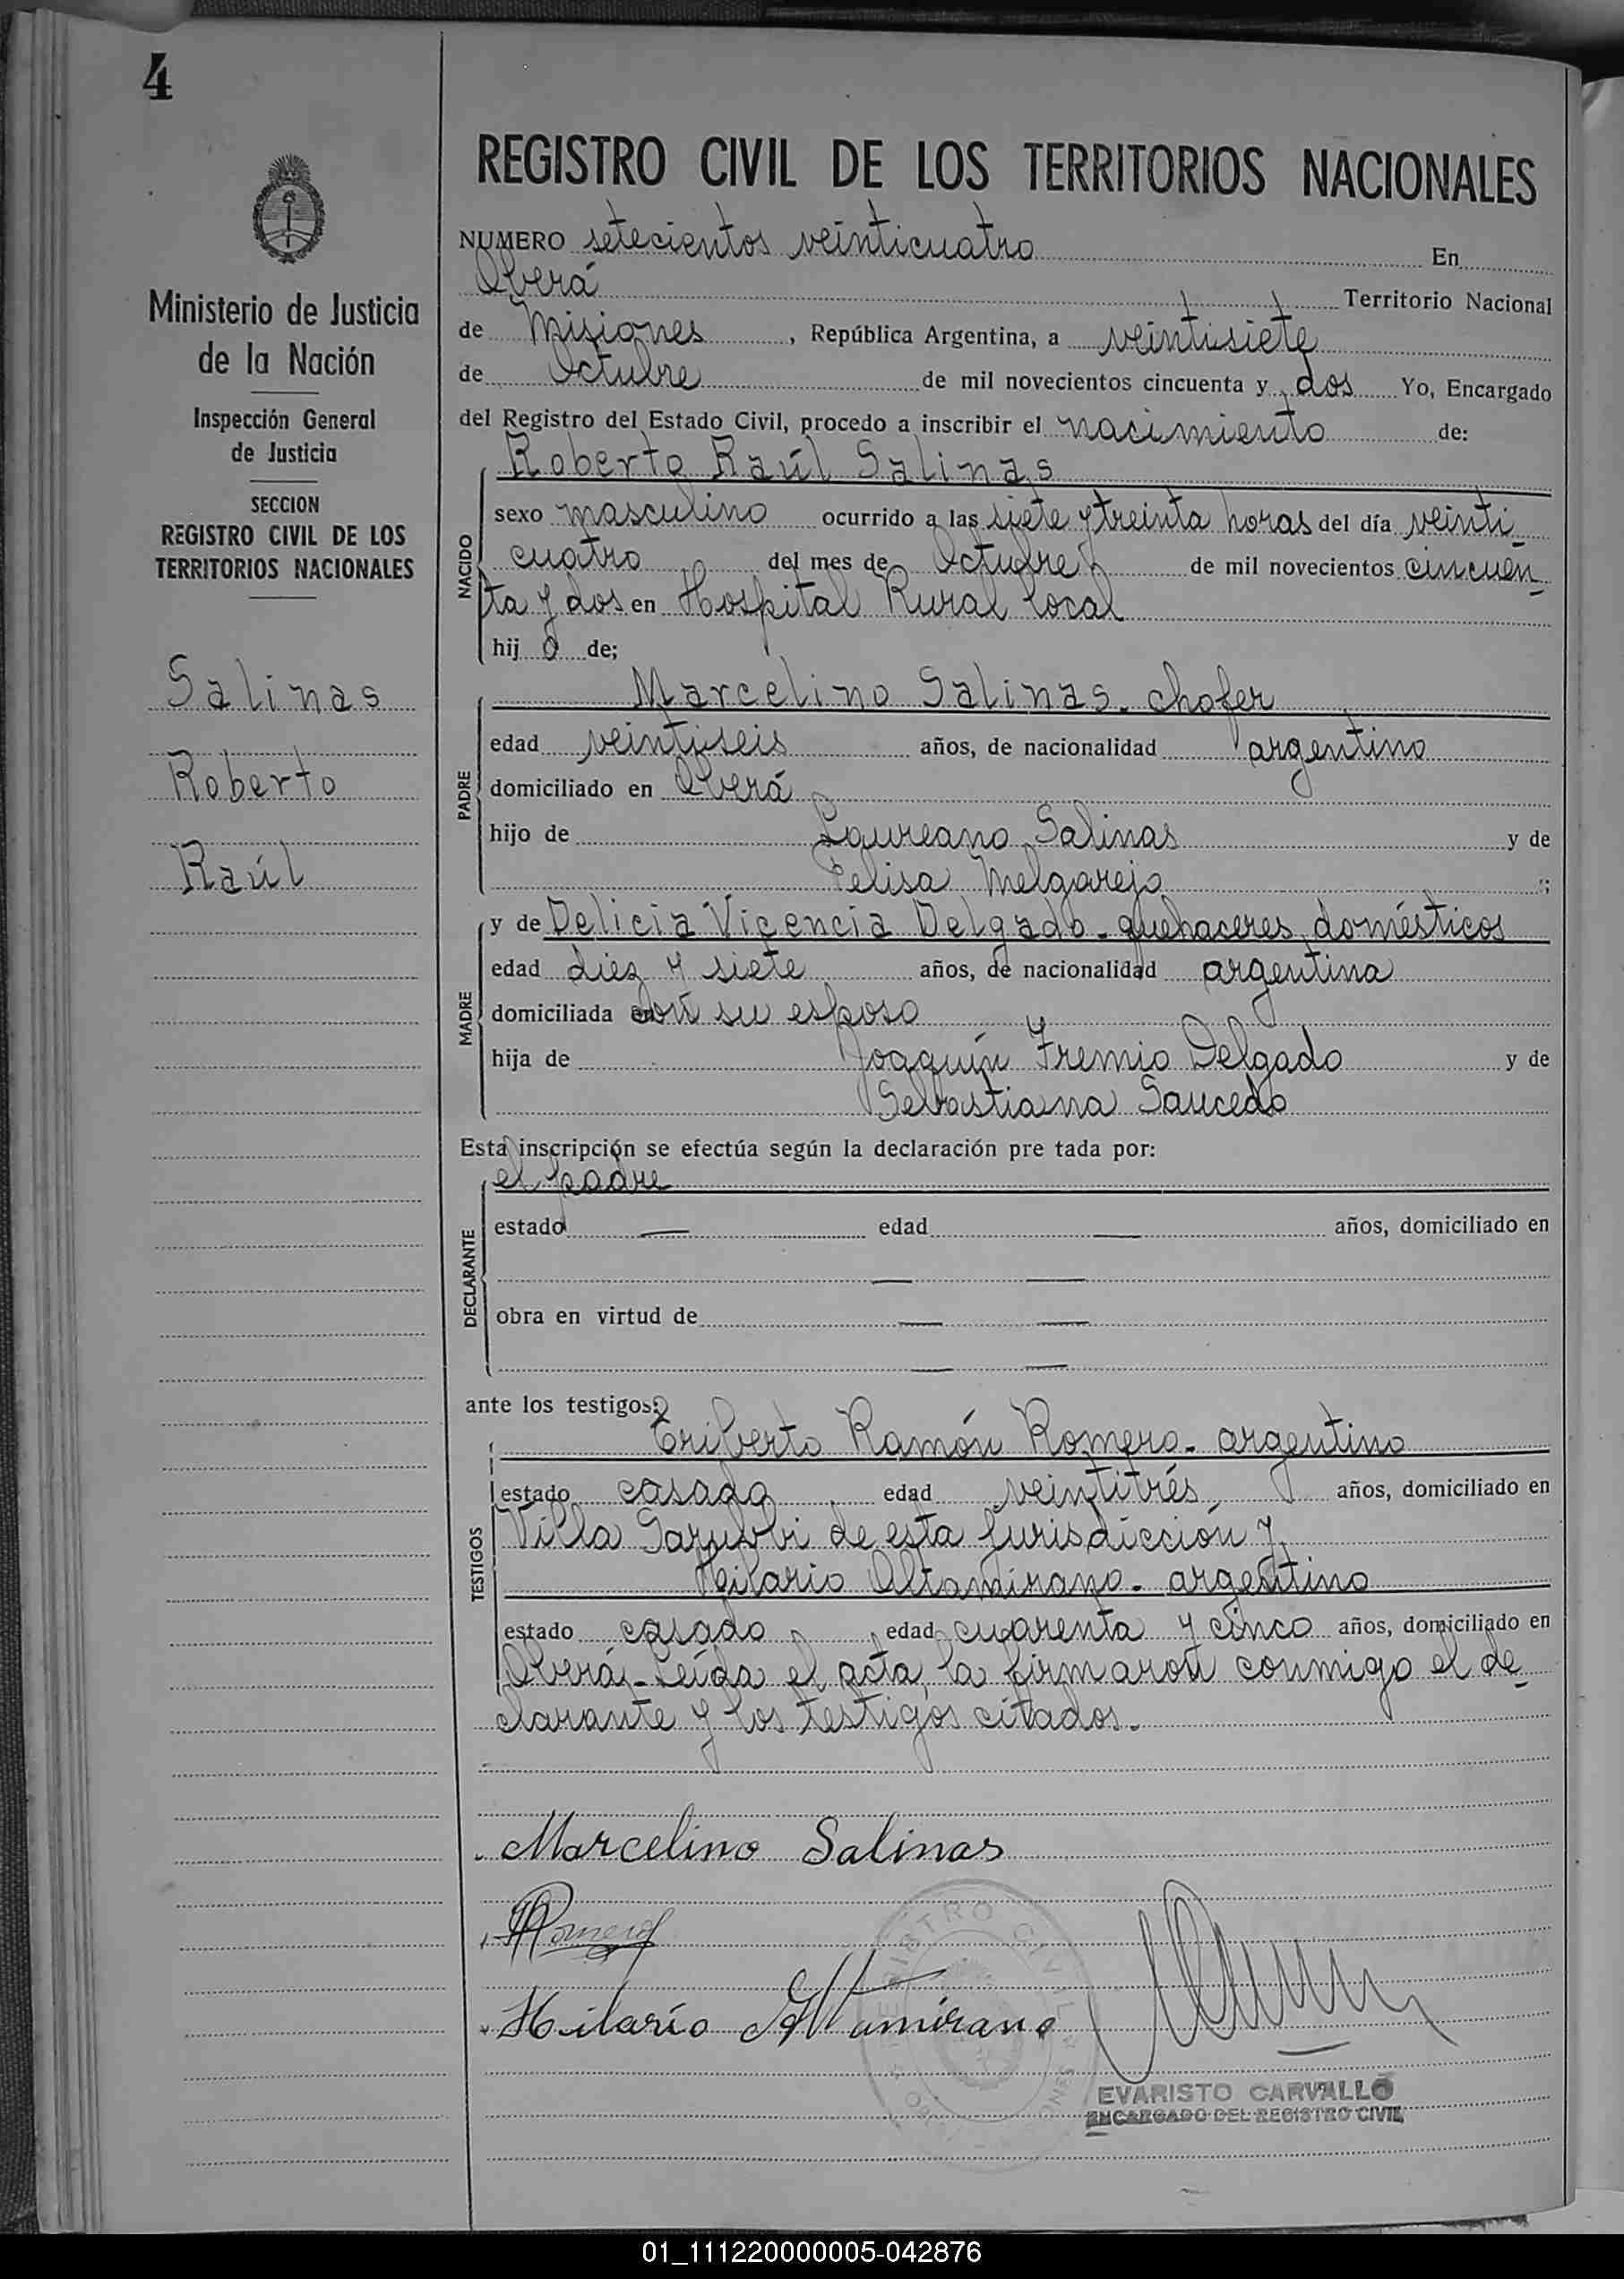 4
Ministerio de Justicia
de la Nación
Inspección General
de Justicia
SECCION
REGISTRO CIVIL DE LOS
TERRITORIOS NACIONALES
Salinas
Roberto
Raúl
REGISTRO CIVIL DE LOS TERRITORIOS NACIONALES
NUMERO setecientos veinticuatro En
Oberá Territorio Nacional
de Misiones, República Argentina, a veintisiete
de Octubre de mil novecientos cincuenta y dos Yo, Encargado
del Registro del Estado Civil, procedo a inscribir el nacimiento de:
NACIDO
Roberto Raúl Salinas
sexo masculino ocurrido a las siete y treinta horas del día veinti-
cuatro del mes de Octubre de mil novecientos cincuen-
ta y dos en Hospital Rural local
hijo de;
PADRE
Marcelino Salinas. chofer
edad veintiseis años, de nacionalidad argentino
domiciliado en Oberá
hijo de Laureano Salinas y de
Felisa Melgarejo ;
MADRE
y de Delicia Vicencia Delgado - quehaceres domésticos
edad diez y siete años, de nacionalidad argentina
domiciliada con su esposo
hija de Joaquín Fremio Delgado y de
Sebastiana Saucedo
Esta inscripción se efectúa según la declaración pre tada por:
DECLARANTE
el padre
estado — edad — años, domiciliado en
— —
obra en virtud de — —
— —
ante los testigos:
TESTIGOS
Eriberto Ramón Romero - argentino
estado casado edad veintitrés años, domiciliado en
Villa Sarubbi de esta jurisdicción y
Hilario Altamirano - argentino
estado casado edad cuarenta y cinco años, domiciliado en
Oberá - Leída el acta, la firmaron conmigo el de-
clarante y los testigos citados.
Marcelino Salinas
Romero
Hilario Altamirano
REGISTRO CIVIL
EVARISTO CARVALLO
ENCARGADO DEL REGISTRO CIVIL
01_111220000005-042876